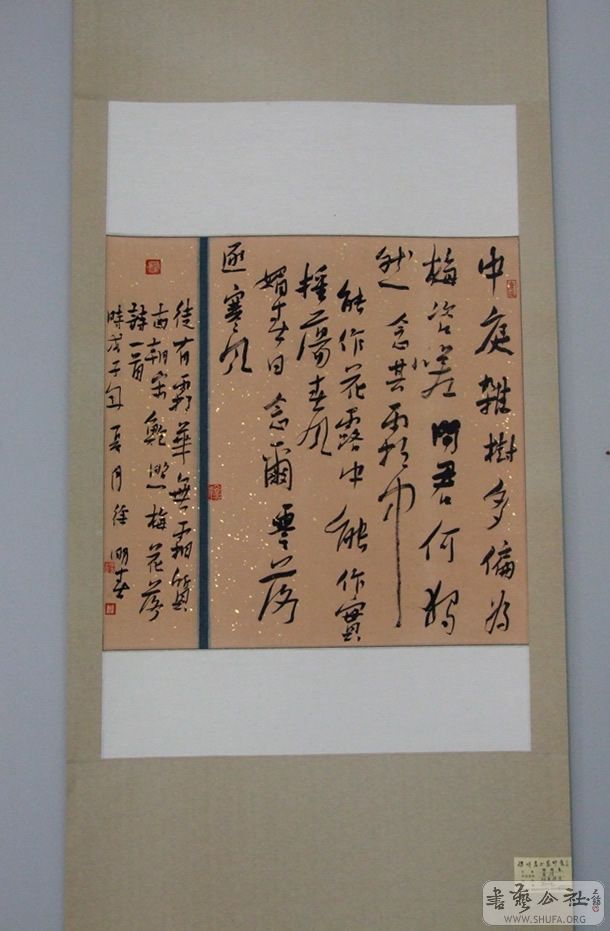 中庭雜樹多偏為
梅咨嗟問君何獨
然念其霜中
能作花露中能作實
搖蕩春風
媚春日念爾零落
逐寒風
徒有霜華無霜質
南朝宋鮑照梅花落
詩一首
時戊子年夏月徐明春
書藝公社
WWW.SHUFA.ORG